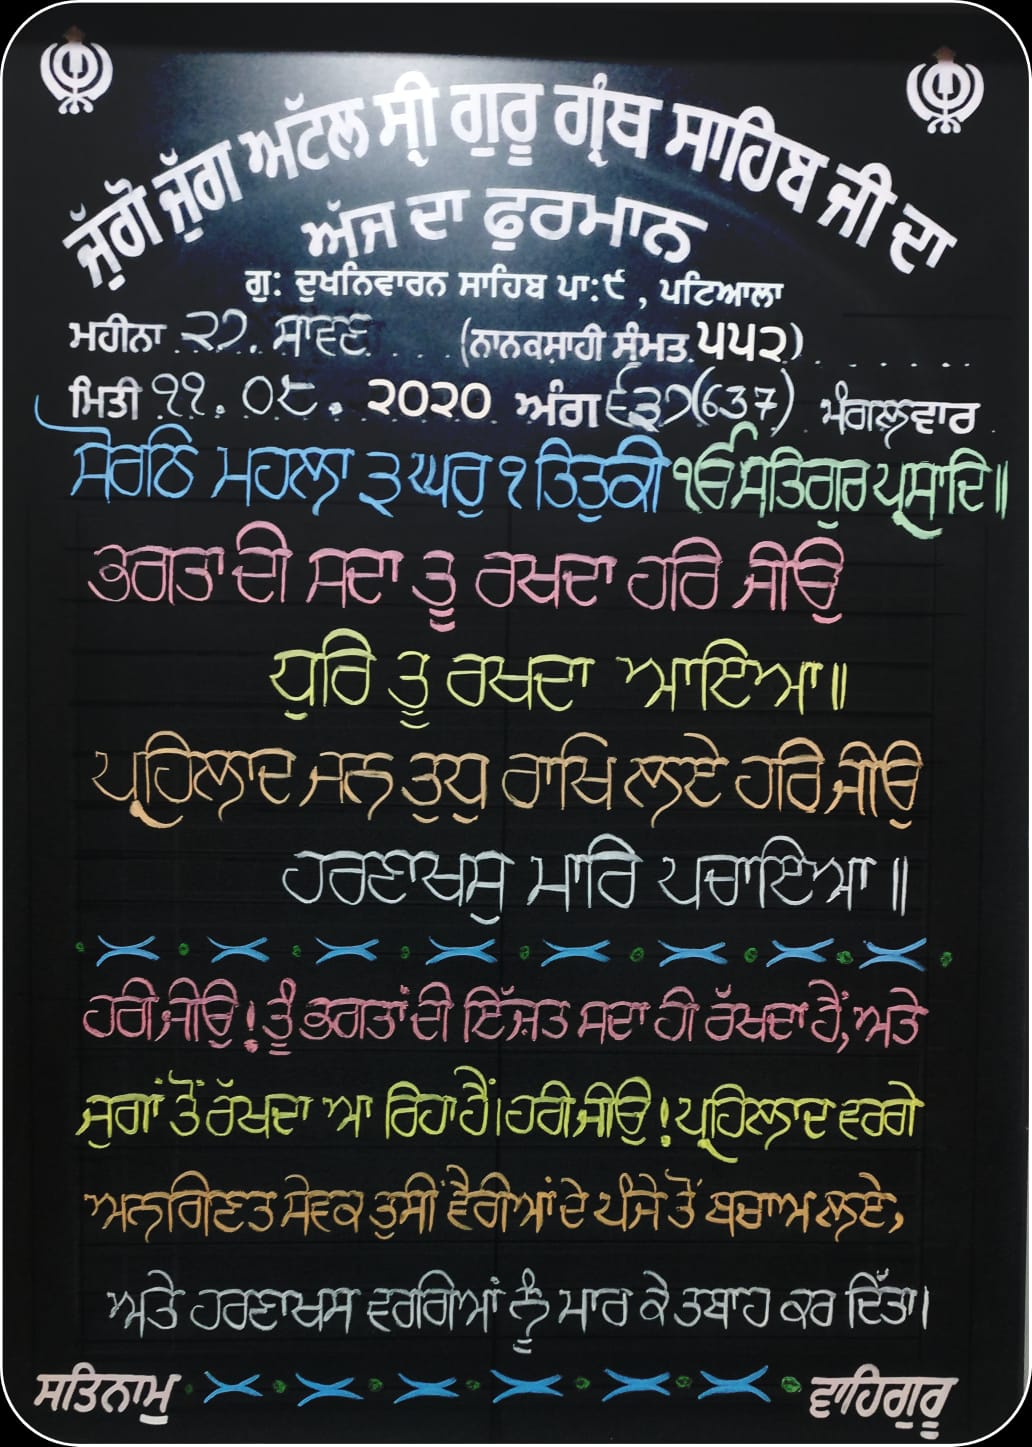 ਜੁੱਗੋ ਜੁੱਗ ਅਟੱਲ ਸ੍ਰੀ ਗੁਰੂ ਗ੍ਰੰਥ ਸਾਹਿਬ ਜੀ ਦਾ
ਅੱਜ ਦਾ ਫੁਰਮਾਨ
ਗੁ: ਦੁਖਨਿਵਾਰਨ ਸਾਹਿਬ ਪਾ:੯ , ਪਟਿਆਲਾ
ਮਹੀਨਾ ੨੭. ਸਾਵਣ (ਨਾਨਕਸ਼ਾਹੀ ਸੰਮਤ ੫੫੨)
ਮਿਤੀ ੧੧. ੦੮. ੨੦੨੦ ਅੰਗ ੬੩੭(637) ਮੰਗਲਵਾਰ
ਸੋਰਠਿ ਮਹਲਾ ੩ ਘਰੁ ੧ ਤਿਤੁਕੀ ੴ ਸਤਿਗੁਰ ਪ੍ਰਸਾਦਿ॥
ਭਗਤਾ ਦੀ ਸਦਾ ਤੂ ਰਖਦਾ ਹਰਿ ਜੀਉ
ਧੁਰਿ ਤੂ ਰਖਦਾ ਆਇਆ॥
ਪ੍ਰਹਿਲਾਦ ਜਨ ਤੁਧੁ ਰਾਖਿ ਲਏ ਹਰਿ ਜੀਉ
ਹਰਣਾਖਸੁ ਮਾਰਿ ਪਚਾਇਆ॥
ਹਰੀ ਜੀਉ! ਤੂੰ ਭਗਤਾਂ ਦੀ ਇੱਜ਼ਤ ਸਦਾ ਹੀ ਰੱਖਦਾ ਹੈਂ, ਅਤੇ
ਜੁਗਾਂ ਤੋਂ ਰੱਖਦਾ ਆ ਰਿਹਾ ਹੈਂ। ਹਰੀ ਜੀਉ! ਪ੍ਰਹਿਲਾਦ ਵਰਗੇ
ਅਨਗਿਣਤ ਸੇਵਕ ਤੁਸੀਂ ਵੈਰੀਆਂ ਦੇ ਪੰਜੇ ਤੋਂ ਬਚਾਅ ਲਏ,
ਅਤੇ ਹਰਣਾਖਸ ਵਰਗਿਆਂ ਨੂੰ ਮਾਰ ਕੇ ਤਬਾਹ ਕਰ ਦਿੱਤਾ।
ਸਤਿਨਾਮੁ ਵਾਹਿਗੁਰੂ